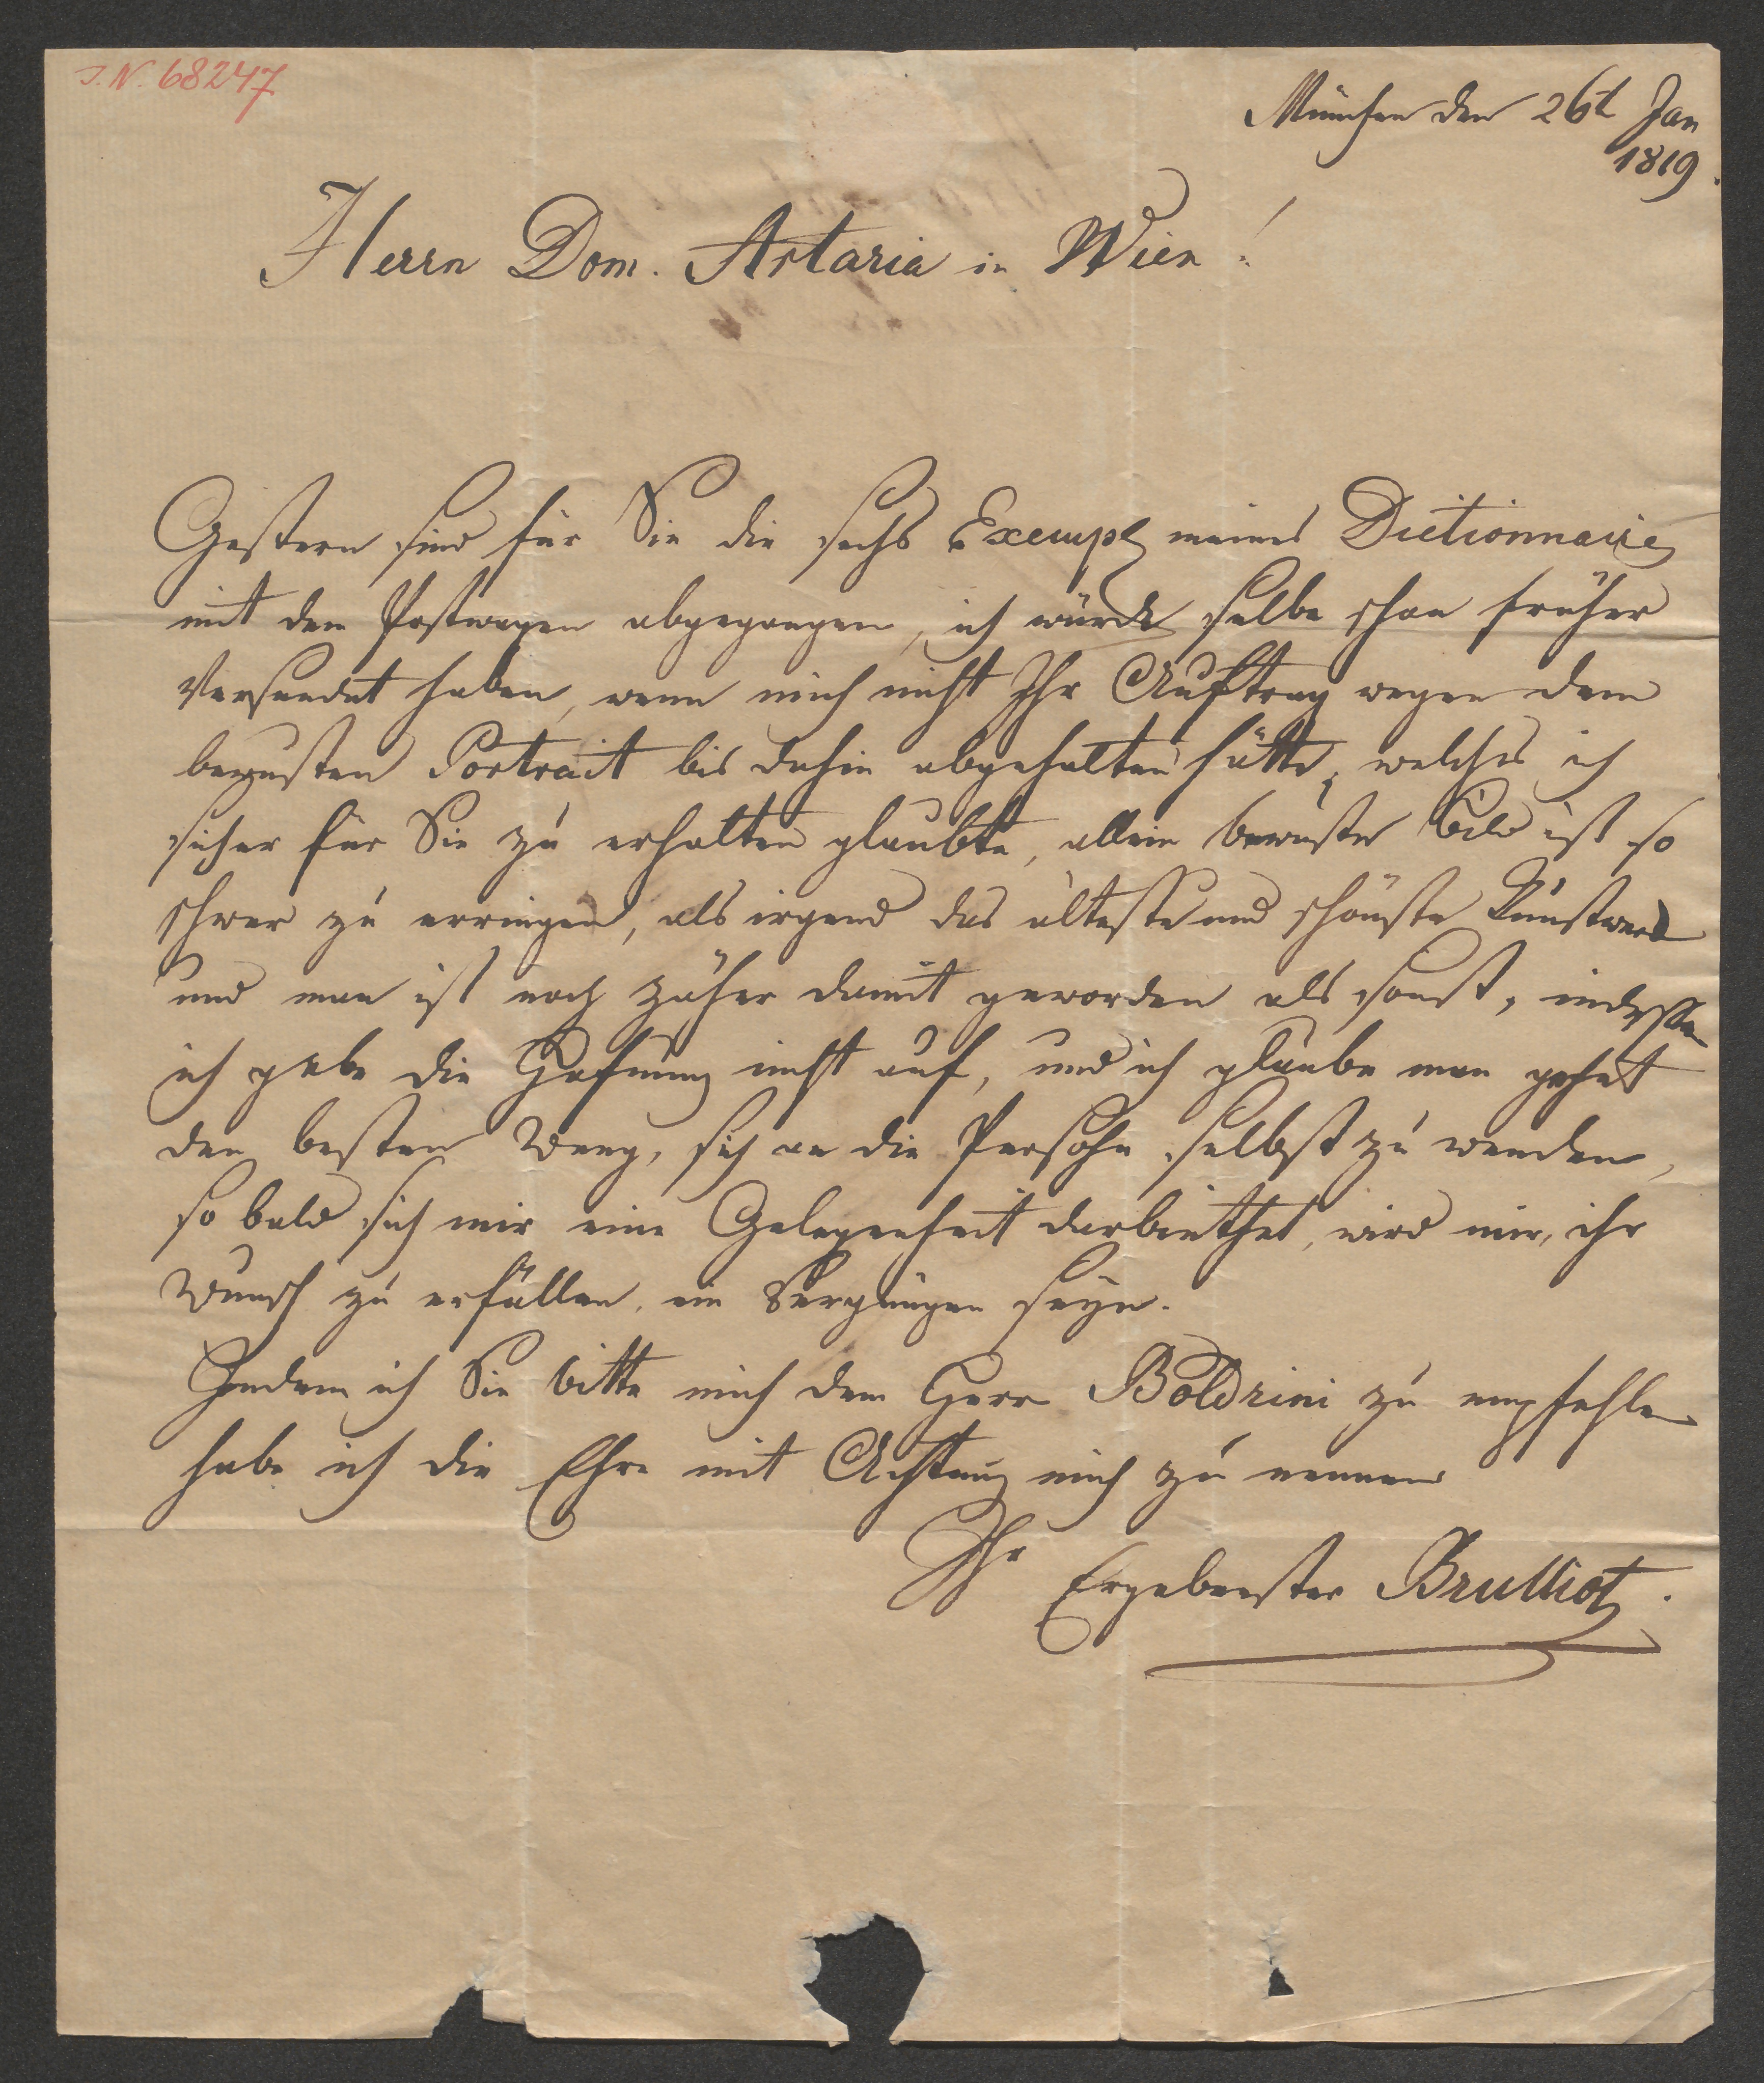 I. N. 68247
München den 26t Jan
1819.
Herrn Dom. Artaria in Wien!
Gestern sind für Sie die sechs Exempl meines Dictionnaires
mit dem Postwagen abgegangen, ich würde selbe schon früher
Versendet haben, wenn mich nicht Ihr Auftrag wegen dem
bewusten Portrait bis dahin abgehalten hätte, welches ich
sicher für Sie zu erhalten glaubte, allein bewuste Bild ist so
schwer zu erringen, als irgend das älteste und schönste Kunstwerk
und man ist noch zäher damit geworden als sonst, indessen
ich gebe die Hofnung nicht auf, und ich glaube man gehet
den besten Weeg, sich an die Persohn selbst zu wenden,
so bald sich mir eine Gelegenheit darbiethet, wird mir, ihr
Wunsch zu erfüllen, ein Vergnügen seyn.
Indem ich Sie bitte mich dem Herrn Boldrini zu empfehlen
habe ich die Ehre mit Achtung mich zu nennen
Ihr
Ergebenster Brulliot.